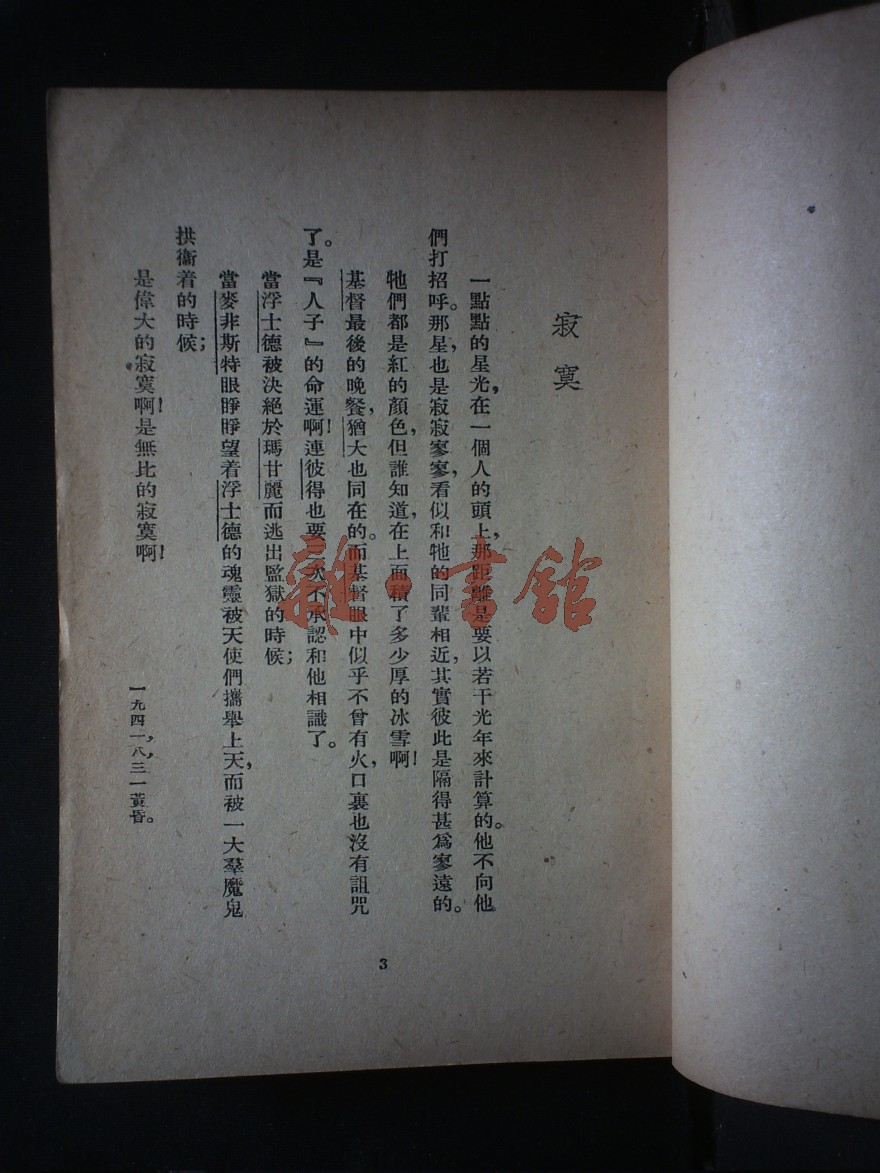 寂寞
一點點的星光，在一個人的頭上，那距離是要以若干光年來計算的。他不向他
們打招呼。那星，也是寂寂寥寥，看似和牠的同輩相近，其實彼此是隔得甚爲寥遠的。
牠們都是紅的顏色，但誰知道，在上面積了多少厚的冰雪啊！
基督最後的晚餐，猶大也同在的。而基督眼中似乎不曾有火，口裏也沒有詛咒
了。是『人子』的命運啊！連彼得也要三次不承認和他相識了。
當浮士德被決絕於瑪甘麗而逃出監獄的時候；
當麥非斯特眼睜睜望着浮士德的魂靈被天使們攜舉上天，而被一大羣魔鬼
拱衞着的時候；
是偉大的寂寞啊！是無比的寂寞啊！
一九四一，八，三一黃昏。
3
雜·書館